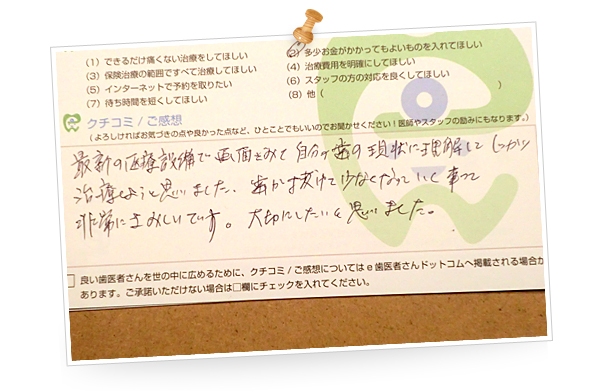 (1) できるだけ痛くない治療をしてほしい
(2) 多少お金がかかってもよいものを入れてほしい
(3) 保険治療の範囲ですべて治療してほしい
(4) 治療費用を明確にしてほしい
(5) インターネットで予約を取りたい
(6) スタッフの方の対応を良くしてほしい
(7) 待ち時間を短くしてほしい
(8) 他 ( )
クチコミ / ご感想
(よろしければお気づきの点や良かった点など、ひとことでもいいのでお聞かせください！医師やスタッフの励みにもなります。)
最新の医療設備で画面をみて自分の歯の現状を理解して しっかり
治療しようと思いました。歯が抜けて少なくなっていく事って
非常にさみしいです。大切にしたいと思いました。
良い歯医者さんを世の中に広めるために、クチコミ / ご感想については e 歯医者さんドットコムへ掲載される場合が
あります。ご承諾いただけない場合は□欄にチェックを入れてください。